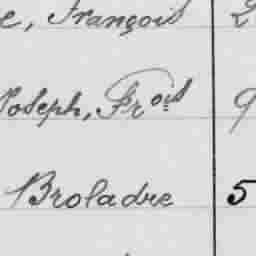 e, François 2
Joseph, Frois 9
Broladre 5